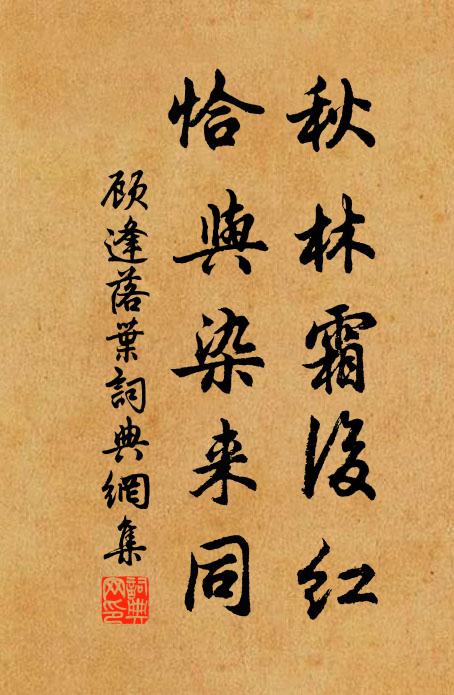 秋林霜後红
恰與染来同
顾逢落葉詞典網集
詞典
网印